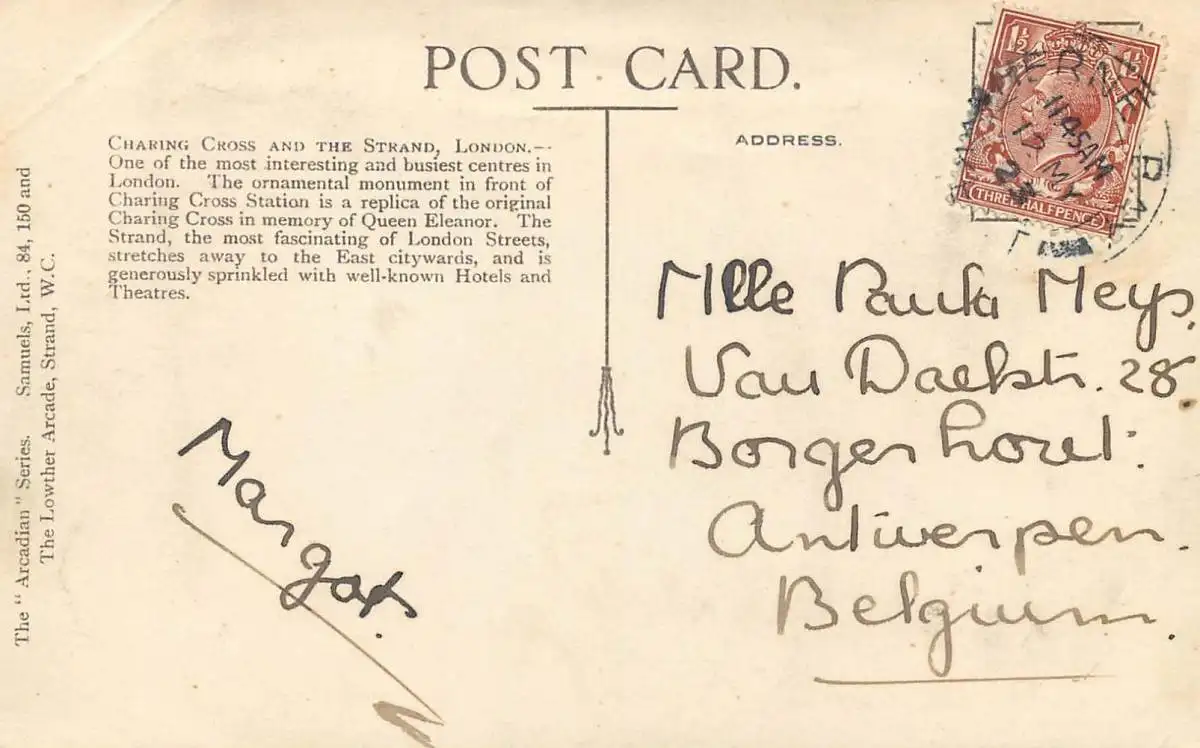 POST CARD.
CHARING CROSS AND THE STRAND, LONDON.—
One of the most interesting and busiest centres in
London. The ornamental monument in front of
Charing Cross Station is a replica of the original
Charing Cross in memory of Queen Eleanor. The
Strand, the most fascinating of London Streets,
stretches away to the East citywards, and is
generously sprinkled with well-known Hotels and
Theatres.
The "Arcadian" Series. Samuels, Ltd., 84, 150 and
The Lowther Arcade, Strand, W.C.
ADDRESS.
1½ 1½
THREE HALFPENCE
HERNE
11.45AM
12 MY
Mlle Paula Meys
Van Daelstr. 28
Borgerhout:
Antwerpen.
Belgium.